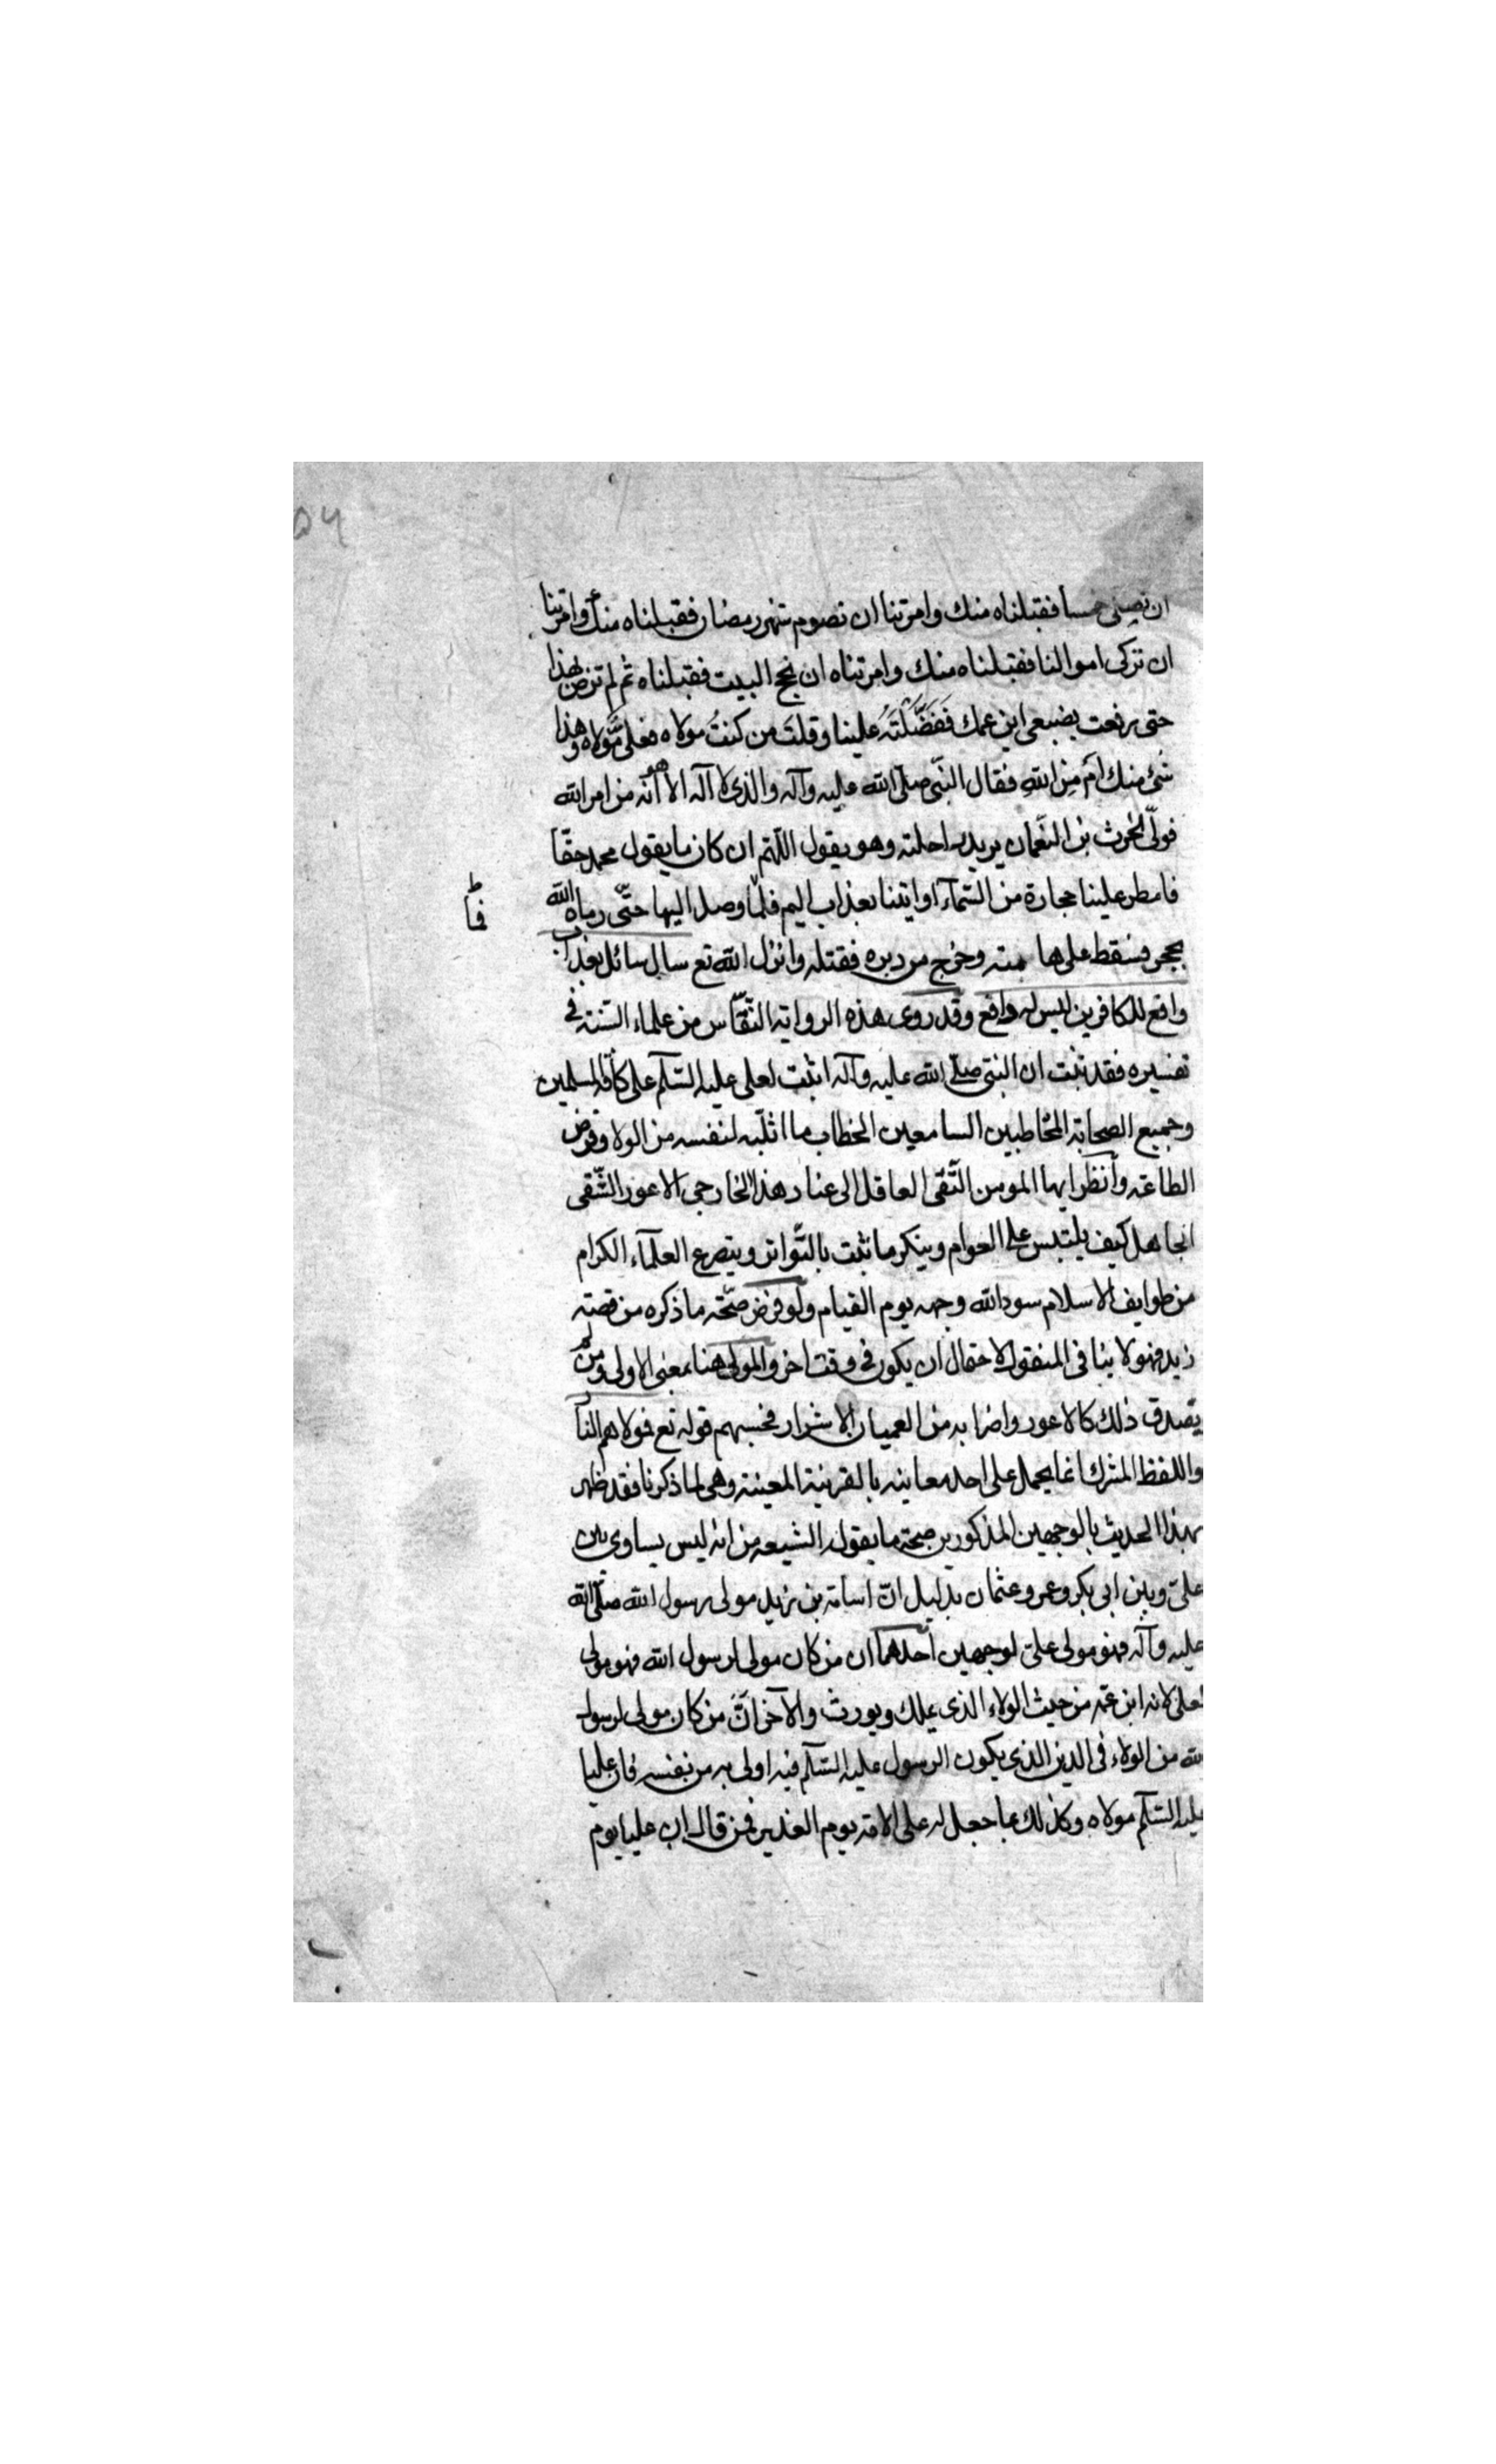 ٥٦
ان نصلى خمسا فقبلناه منك وامرتنا ان نصوم شهر رمضان فقبلناه منك وامرتنا
ان نزكى اموالنا فقبلناه منك وامرتناه ان نحج البيت فقبلناه ثم لم ترض بهذا
حتى رفعت بضبعى ابن عمك فَفَضَّلْتَهُ علينا وقلتَ من كنتُ مولاه فعلىٌّ مولاه وهذا
شئ منك اَم مِن اللهِ فقال النّبى صلّى الله عليه وآله والذى لا آله الا هو انّه من امر الله
فولّى الحرث بن النّعمان يريد راحلته وهو يقول اللّهم ان كان ما يقول محمد حقّا
فامطر علينا حجارة من السّمآء او ايتنا بعذاب اليم فلمّا وصل اليها حتّى رماه الله
فا
بحجر فسقط على هامته وخرج من دبره فقتله وانزل الله تع سال سائل بعذاب
واقع للكافرين ليس له دافع وقد روى هذه الرواية النّقّاس من علماء السّنة فى
تفسيره فقد ثبت ان النبى صلّى الله عليه وآله اثبت لعلى عليه السّلم على كافّة المسلمين
وجميع الصحابة المخاطبين السامعين الخطاب ما اثبته لنفسه من الولا وفرض
الطاعة وانظر ايها المومن التّقى العاقل الى عناد هذا الخارجى الاعور الشّقى
الجاهل كيف يلتبس على العوام وينكر ما ثبت بالتّواتر ويتصرع العلمآء الكرام
من طوايف الاسلام سود الله وجهه يوم القيام ولو فرض صحّة ما ذكره من قصة
زيد فهو لا ينافى المنقول لاحتمال ان يكون فى وقت اخر والمولى هنا بمعنى الاولى ومن لم
يصدق ذلك كالاعور واضرابه من العميان الاشرار فحسبهم قوله تع مولاهم النآ
واللفظ المشرك انما يحمل على احد معانيه بالقرينة المعينة وهى لما ذكرنا فقد ظهر
بهذا الحديث بالوجهين المذكورين صحة ما يقول الشيعة من انه ليس يساوى بين
علىّ وبين ابى بكر وعمر وعثمان بدليل انّ اسامة بن زيد مولى رسول الله صلّى الله
عليه وآله فهو مولى علىّ لوجهين احدهما ان من كان مولى لرسول الله فهو مولى
لعلى لانه ابن عمّه من حيث الولاء الذى يملك ويورث والآخر انّ من كان مولى لرسول
لله من الولاء فى الدين الذى يكون الرسول عليه السّلم فيه اولى به من نفسه فان عليا
عليه السّلم مولاه وكذلك بما جعل له على الامة يوم الغدير فمن قال ان عليا يوم